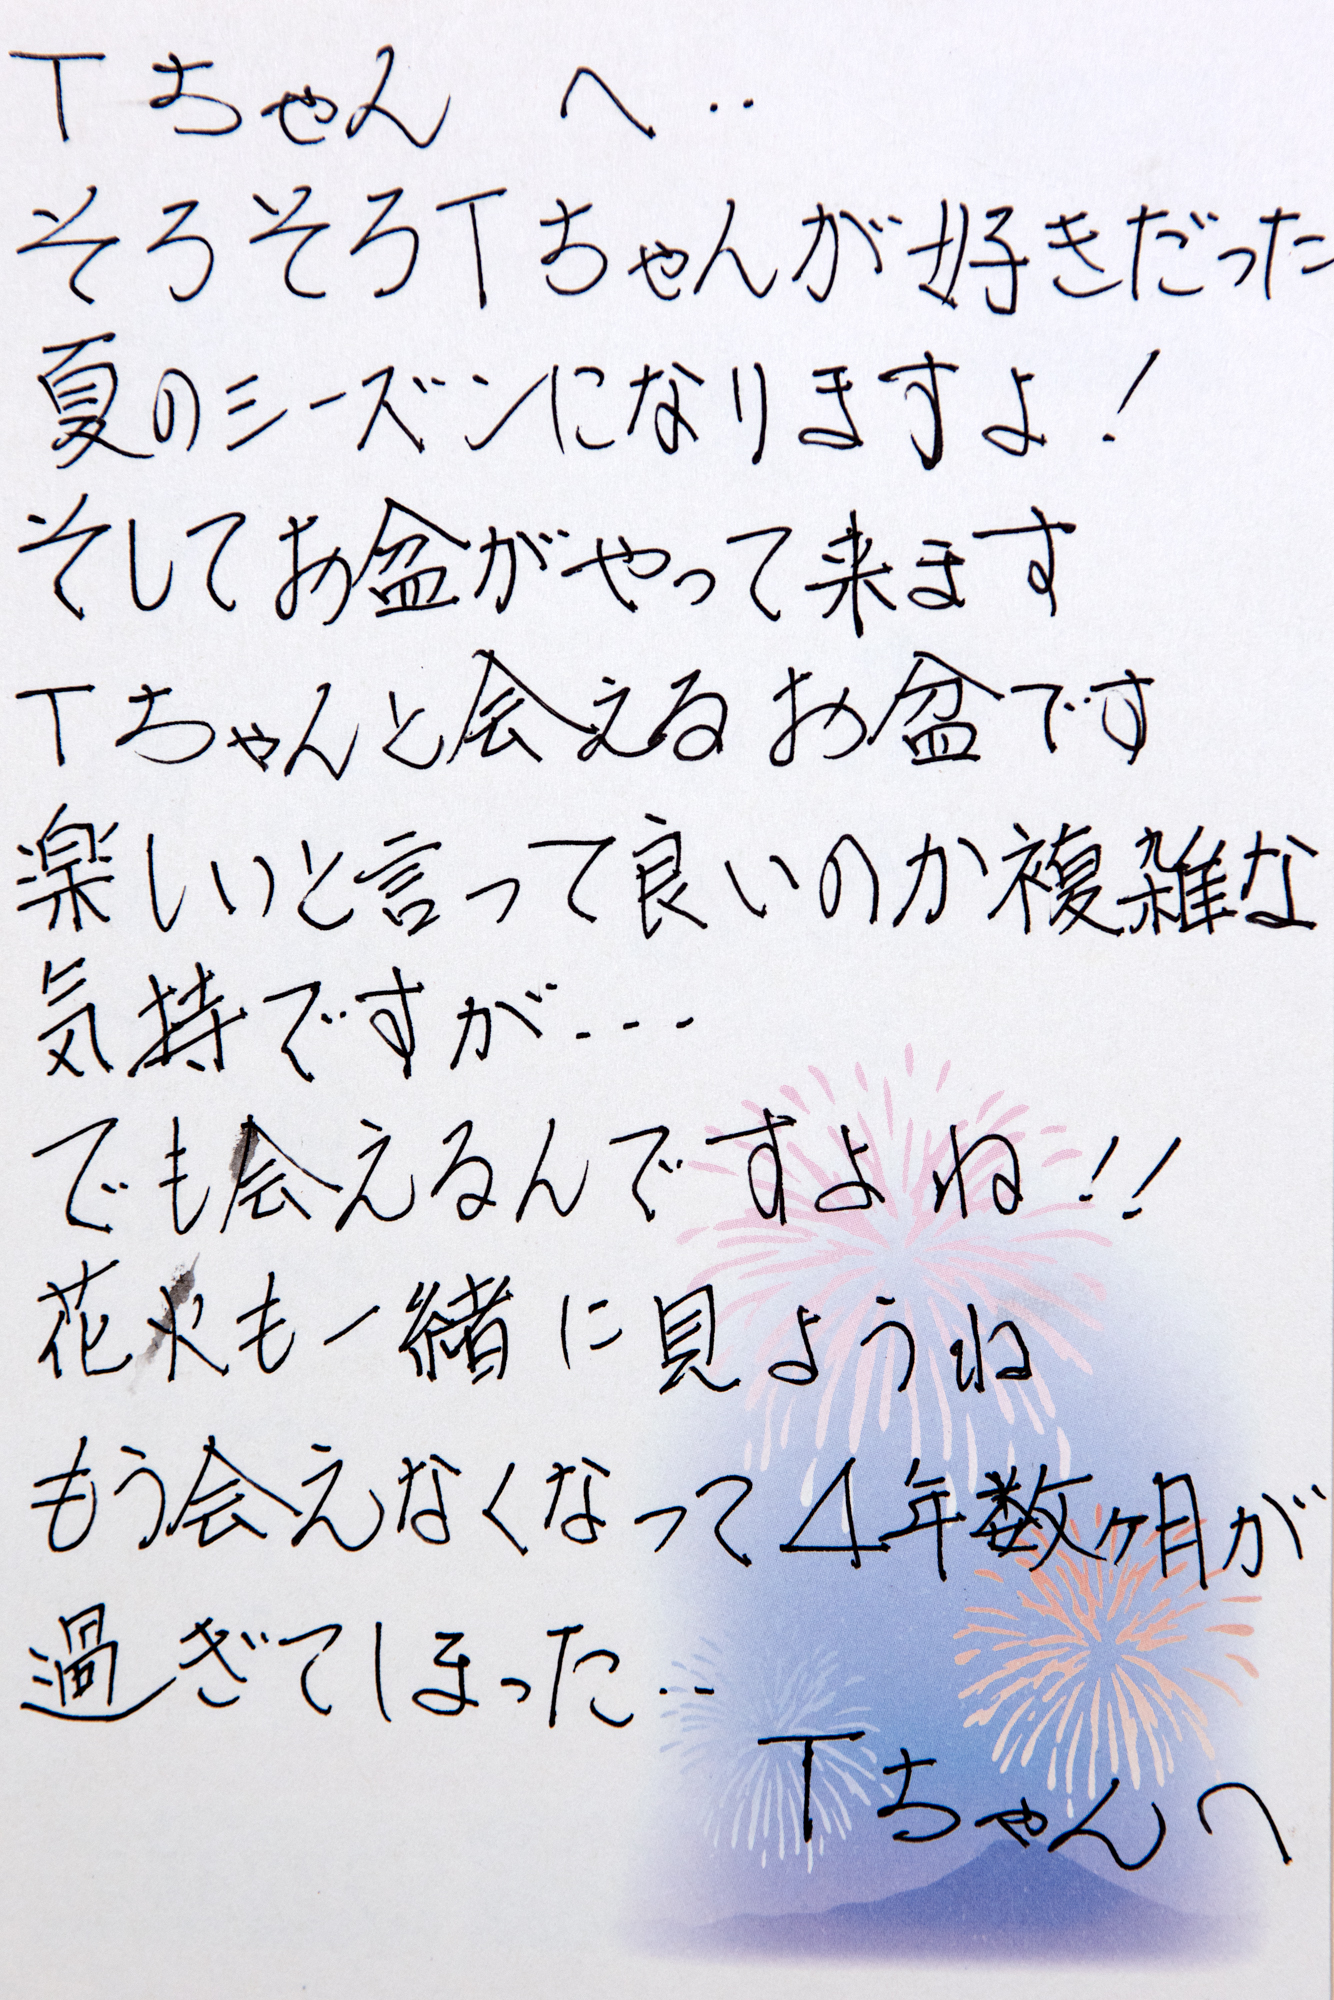 Tちゃんへ‥
そろそろTちゃんが好きだった
夏のシーズンになりますよ!
そしてお盆がやって来ます
Tちゃんと会えるお盆です
楽しいと言って良いのか複雑な
気持ですが---
でも会えるんですよね!!
花火も一緒に見ようね
もう会えなくなって4年数ヶ月が
過ぎてしまった‥
Tちゃんへ